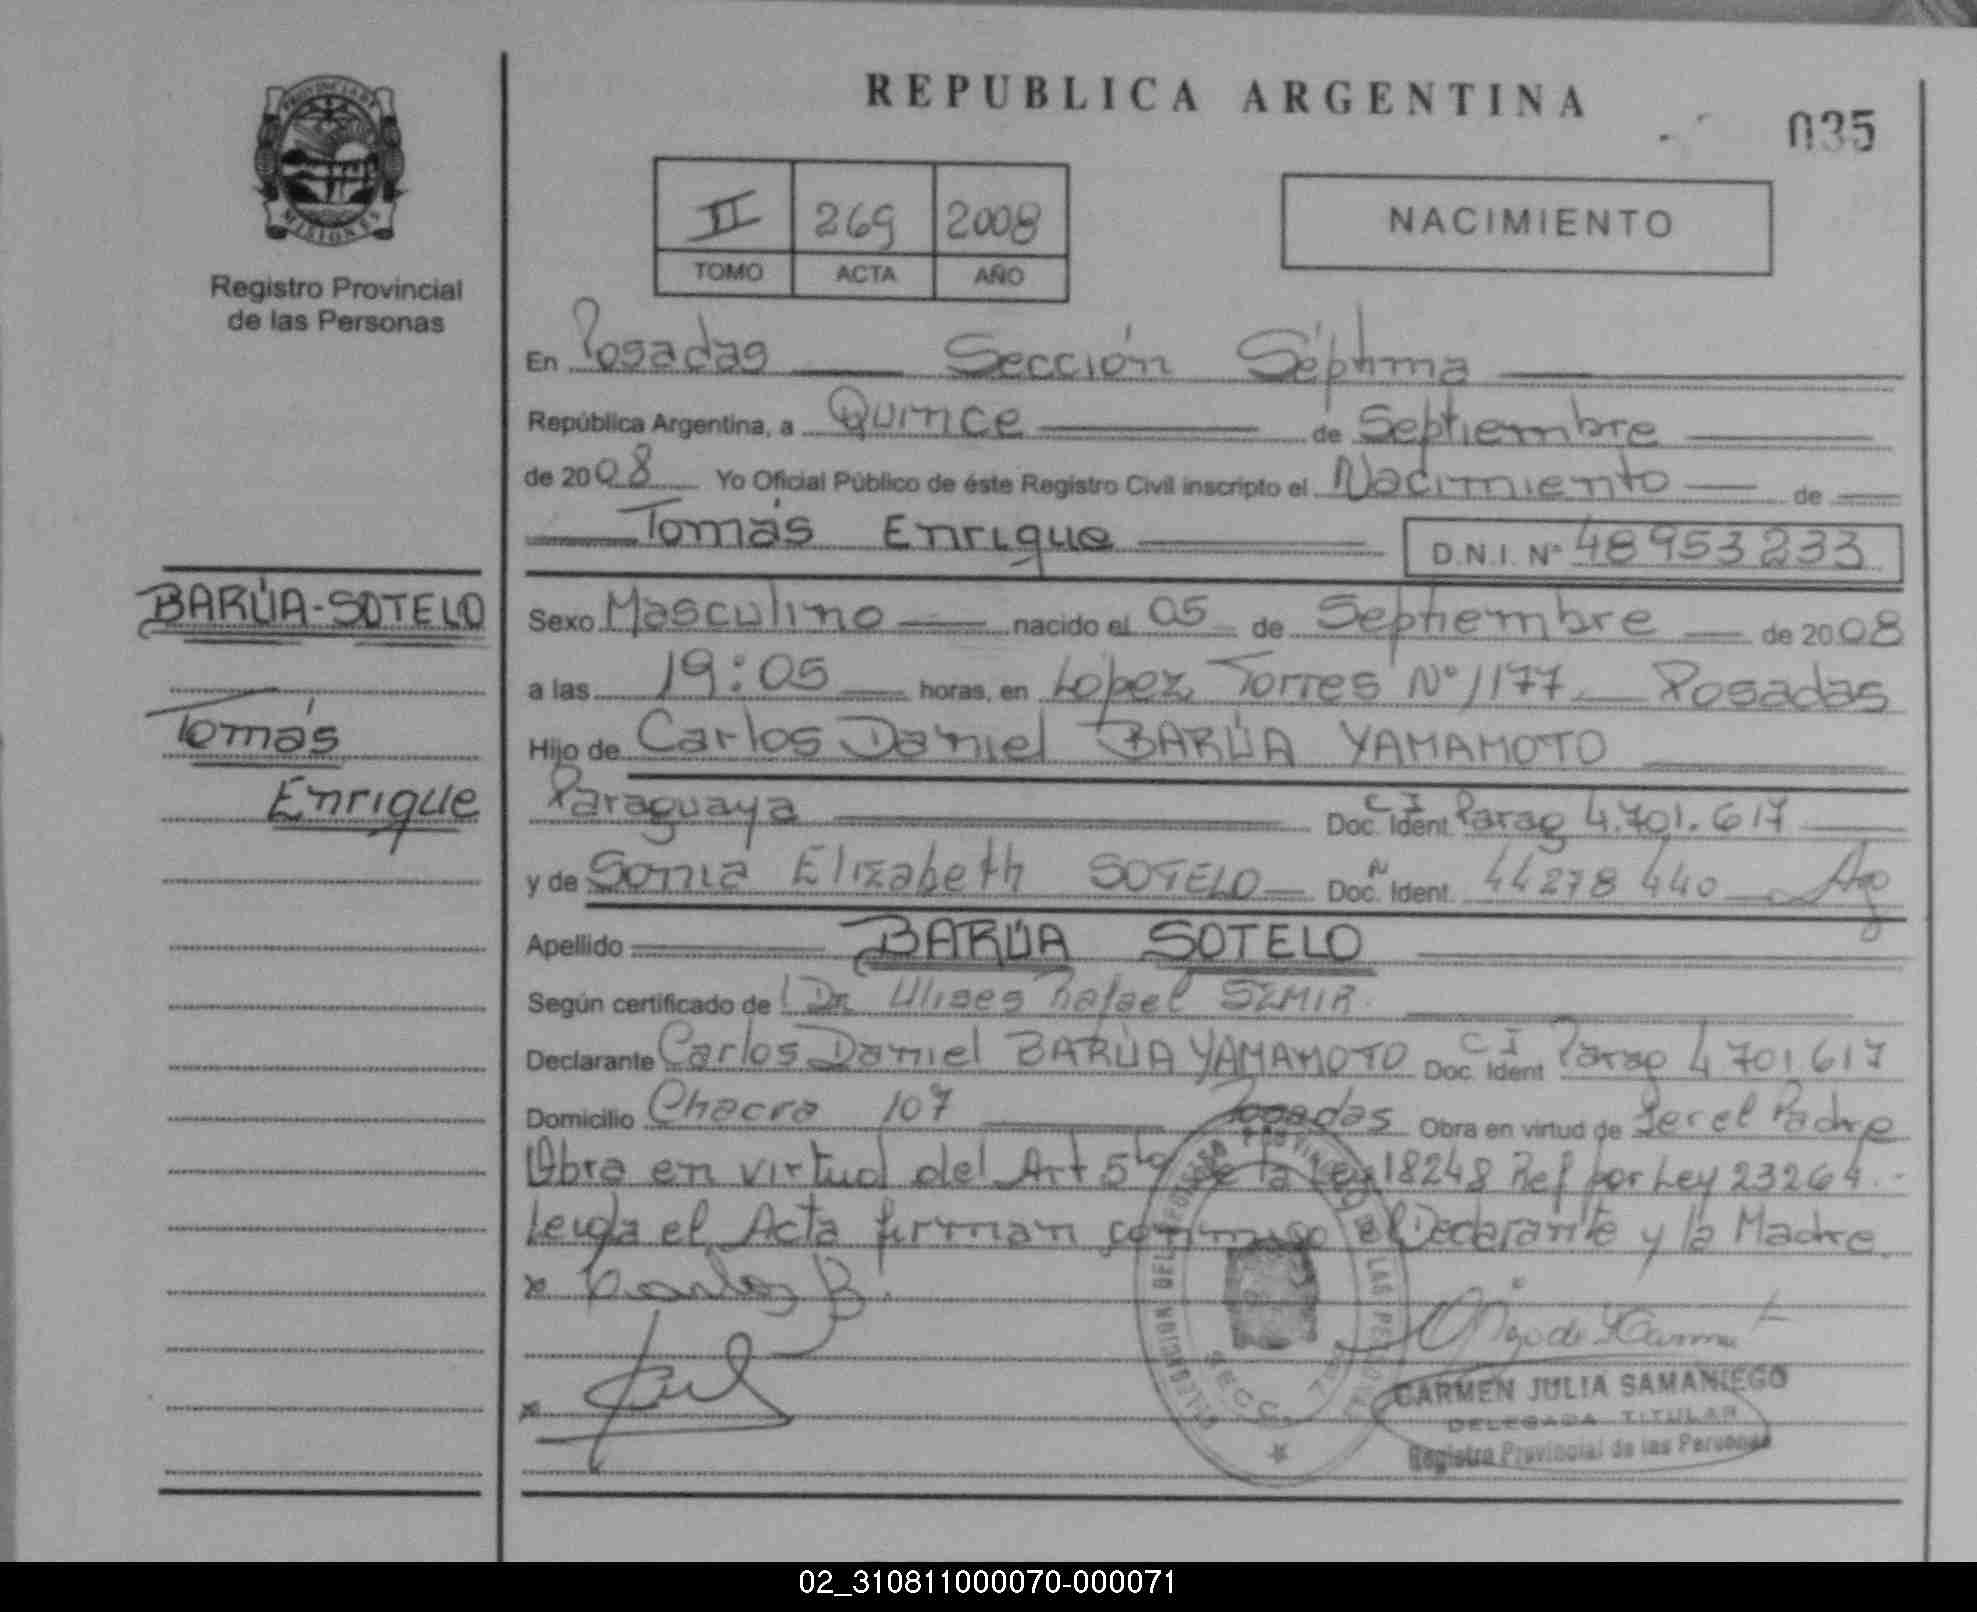 REPUBLICA ARGENTINA
035
PROVINCIA DE
MISIONES
Registro Provincial
de las Personas
II 269 2008
TOMO ACTA AÑO
NACIMIENTO
En Posadas Sección Séptima
República Argentina, a Quince de Septiembre
de 2008 Yo Oficial Público de éste Registro Civil inscripto el Nacimiento de
Tomás Enrique D.N.I. Nº 48953233
BARÚA-SOTELO
Tomás
Enrique
Sexo Masculino nacido el 05 de Septiembre de 2008
a las 19:05 horas, en López Torres Nº 1177 Posadas
Hijo de Carlos Daniel BARÚA YAMAMOTO
Paraguaya Doc. Ident. C I Parag 4.701.617
y de Sonia Elizabeth SOTELO Doc. Ident. N 44278440
Apellido BARÚA SOTELO
Según certificado de Dr Ulises Rafael
Declarante Carlos Daniel BARÚA YAMAMOTO Doc. Ident C I Parag 4701617
Domicilio Chacra 107 Posadas Obra en virtud de Ser el Padre
Obra en virtud del Art 5to de la Ley 18248 Ref por Ley 23264.-
Leida el Acta firman conmigo el Declarante y la Madre.
x Carlos B.
x
CARMEN JULIA SAMANIEGO
DELEGADA TITULAR
Registro Provincial de las Personas
02_310811000070-000071